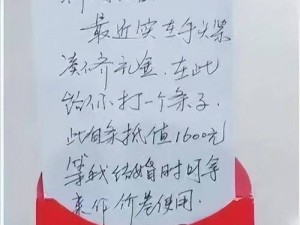 最近实在手头紧
凑不齐礼金,在此
给你打一个条子.
此白条抵值1600元
等我结婚时可拿
来作价卷使用.